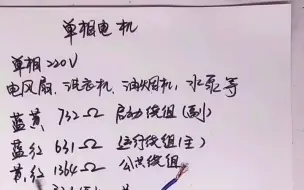 单相电机
单相220V
电风扇、洗衣机、油烟机,水泵等
蓝黄 732Ω 启动绕组(副)
蓝红 631Ω 运行绕组(主)
黄红 1364Ω 公共绕组